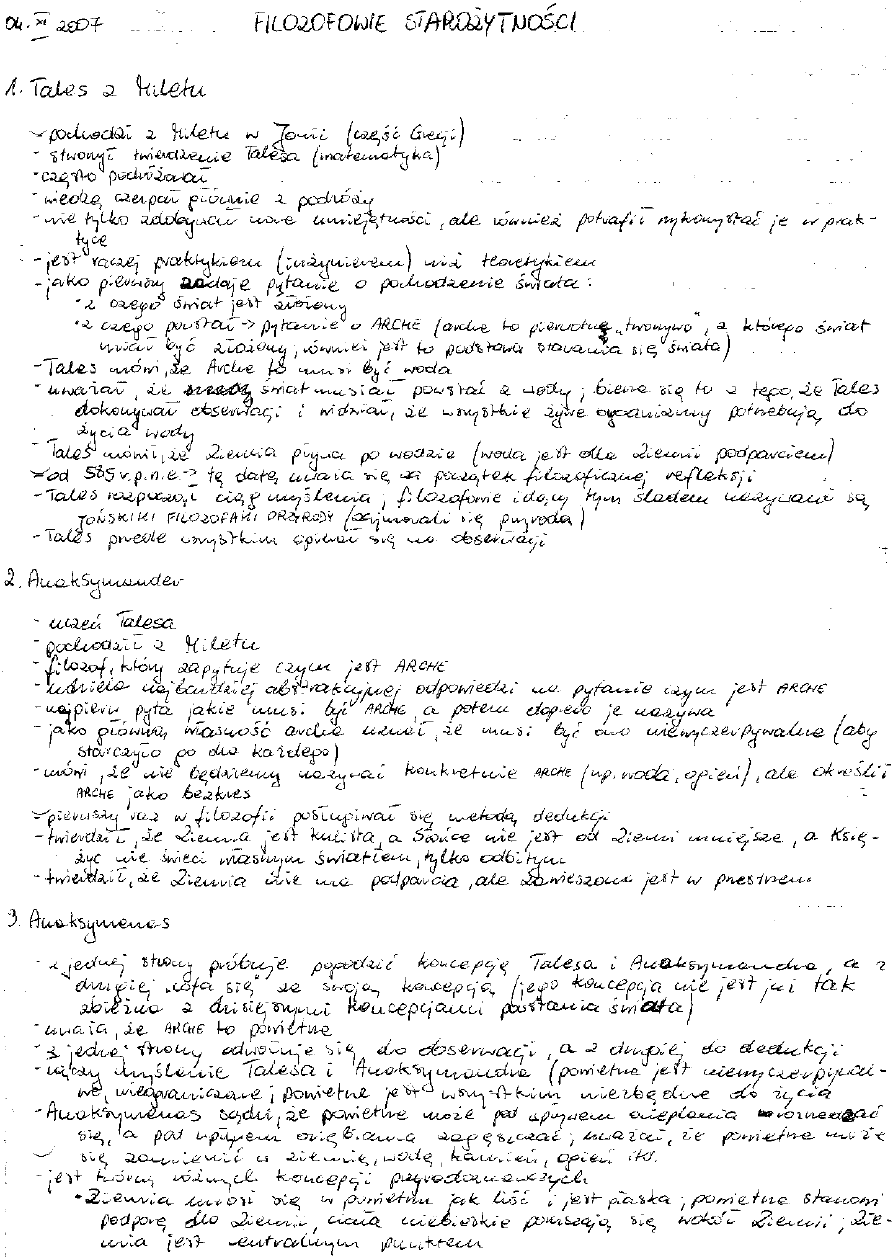 04.XI 2007 FILOZOFOWIE STAROŻYTNOŚCI
1. Tales z Miletu
- pochodzi z Miletu w Jonii (część Grecji)
- stworzył twierdzenie Talesa (matematyka)
- często podróżował
- wiedzę czerpał głównie z podróży
- nie tylko zdobywał nowe umiejętności, ale również potrafił wykorzystać je w prak-
tyce
- jest raczej praktykiem (inżynierem) niż teoretykiem
- jako pierwszy zadaje pytanie o pochodzenie świata:
• z czego świat jest złożony
• z czego powstał -> pytanie o ARCHE (arche to pierwotne "tworzywo", z którego świat
miał być złożony, również jest to podstawa stawania się świata)
- Tales mówi, że Arche to musi być woda
- uważał, że świat musiał powstać z wody; bierze się to z tego, że Tales
dokonywał obserwacji i widział, że wszystkie żywe organizmy potrzebują do
życia wody
- Tales mówił, że Ziemia pływa po wodzie (woda jest dla Ziemii podparciem)
- od 585 r.p.n.e -> tę datę uważa się za początek filozoficznej refleksji
- Tales rozpoczął ciąg myślenia; filozofowie idący tym śladem nazywani są
JOŃSKIMI FILOZOFAMI PRZYRODY (zajmowali się przyrodą)
- Tales przede wszystkim opierał się na obserwacji
2. Anaksymander
- uczeń Talesa
- pochodził z Miletu
- filozof, który zapytuje czym jest ARCHE
- udziela najbardziej abstrakcyjnej odpowiedzi na pytanie czym jest ARCHE
- najpierw pyta jakie musi być ARCHE, a potem dopiero je nazywa
- jako główną własność arche uznał, że musi być ono niewyczerpywalne (aby
starczyło go dla każdego)
- mówi, że nie będziemy nazywać konkretnie ARCHE (np. woda, ogień), ale określił
ARCHE jako bezkres
- pierwszy raz w filozofii posługiwał się metodą dedukcji
- twierdził, że Ziemia jest kulista, a Słońce nie jest od Ziemi mniejsze, a Księ-
życ nie świeci własnym światłem, tylko odbitym
- twierdził, że Ziemia nie ma podparcia, ale zawieszona jest w przestrzeni
3. Anaksymenes
- z jednej strony próbuje pogodzić koncepcję Talesa i Anaksymandra, a z
drugiej cofa się ze swoją koncepcją (jego koncepcja nie jest już tak
zbieżna z dzisiejszymi koncepcjami powstania świata)
- uważa, że ARCHE to powietrze
- z jednej strony odwołuje się do obserwacji, a z drugiej do dedukcji
- łączy myślenie Talesa i Anaksymandra (powietrze jest niewyczerpywal-
ne, nieograniczone; powietrze jest wszystkim niezbędne do życia
- Anaksymenes sądzi, że powietrze może pod wpływem ocieplania rozrzedzać
się, a pod wpływem oziębiania zagęszczać; uważał, że powietrze może
się zamienić w ziemię, wodę, kamień, ogień itd.
- jest twórcą różnych koncepcji przyrodoznawczych
• Ziemia unosi się w powietrzu jak liść i jest płaska; powietrze stanowi
podporę dla Ziemii, ciała niebieskie poruszają się wokół Ziemii; Zie-
mia jest centralnym punktem